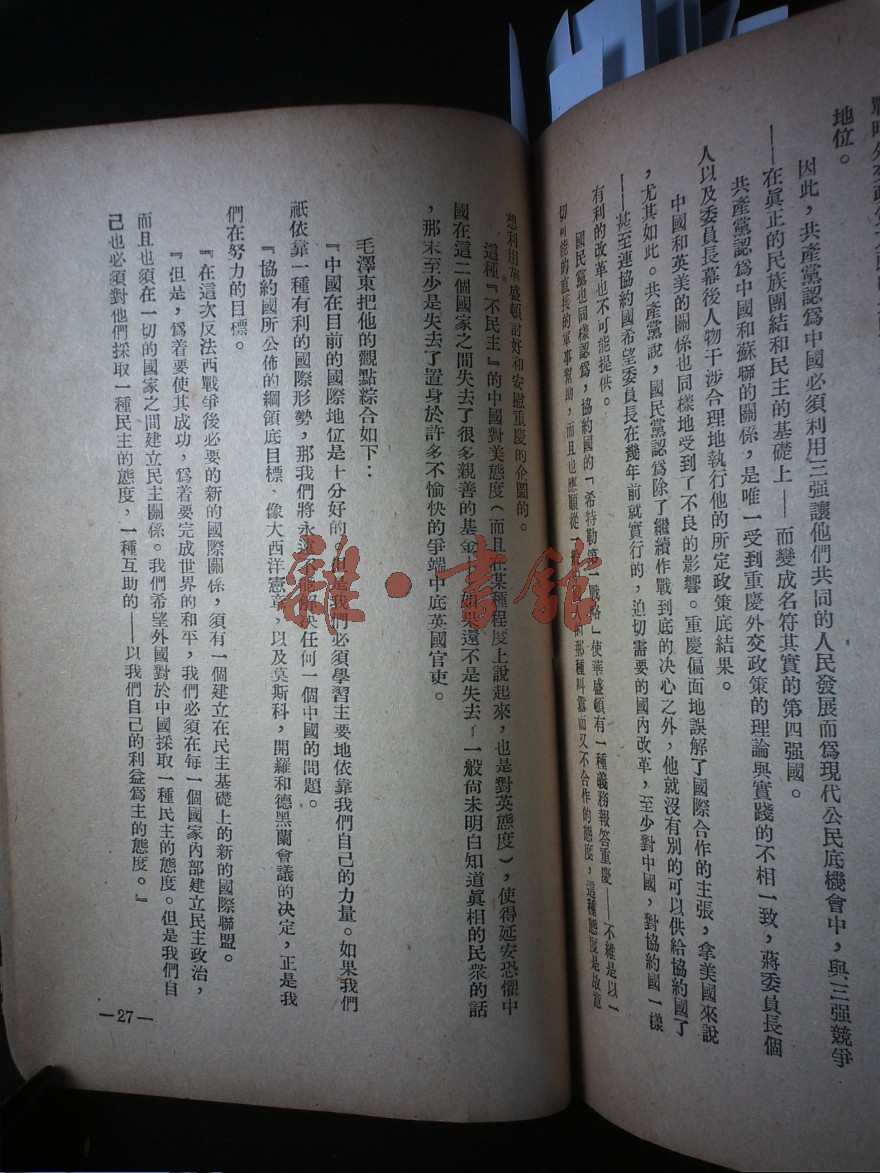 地位。
因此，共產黨認爲中國必須利用三强讓他們共同的人民發展而爲現代公民底機會中，與三强競爭
——在眞正的民族團結和民主的基礎上——而變成名符其實的第四强國。
共產黨認爲中國和蘇聯的關係，是唯一受到重慶外交政策的理論與實踐的不相一致，蔣委員長個
人以及委員長幕後人物干涉合理地執行他的所定政策底結果。
中國和英美的關係也同樣地受到了不良的影響。重慶偏面地誤解了國際合作的主張，拿美國來說
，尤其如此。共產黨說，國民黨認爲除了繼續作戰到底的决心之外，他就沒有別的可以供給協約國了
——甚至連協約國希望委員長在幾年前就實行的，迫切需要的國內改革，至少對中國，對協約國一樣
有利的改革也不可能提供。
國民黨也同樣認爲，協約國的「希特勒第一戰略」使華盛頓有一種義務報答重慶——不維是以一
切可能的直接的軍事幫助，而且也應順從 那種叫囂而又不合作的態度，這種態度是故意
想利用華盛頓討好和安慰重慶的企圖的。
這種『不民主』的中國對美態度（而且在某種程度上說起來，也是對英態度），使得延安恐懼中
國在這二個國家之間失去了很多親善的基金，如果還不是失去了一般尙未明白知道眞相的民衆的話
，那末至少是失去了置身於許多不愉快的爭端中底英國官吏。
毛澤東把他的觀點綜合如下：
『中國在目前的國際地位是十分好的。但是我們必須學習主要地依靠我們自己的力量。如果我們
祇依靠一種有利的國際形勢，那我們將永遠不能解决任何一個中國的問題。
『協約國所公佈的綱領底目標，像大西洋憲章，以及莫斯科，開羅和德黑蘭會議的决定，正是我
們在努力的目標。
『在這次反法西戰爭後必要的新的國際關係，須有一個建立在民主基礎上的新的國際聯盟。
『但是，爲着要使其成功，爲着要完成世界的和平，我們必須在每一個國家內部建立民主政治，
而且也須在一切的國家之間建立民主關係。我們希望外國對於中國採取一種民主的態度。但是我們自
己也必須對他們採取一種民主的態度，一種互助的——以我們自己的利益爲主的態度。』
—27—
雜·書舘